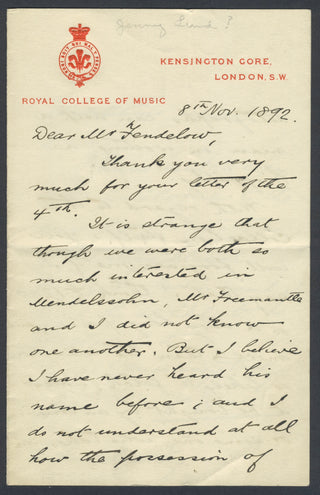 Jenny Lind?
KENSINGTON GORE,
LONDON, S.W.
ROYAL COLLEGE OF MUSIC
8th Nov. 1892.
Dear Mr Fendelow,
Thank you very
much for your letter of the
4th.
It is strange that
though we were both so
much interested in
Mendelssohn, Mr Freemantle
and I did not know
one another. But I believe
I have never heard his
name before; and I
do not understand at all
how the possession of